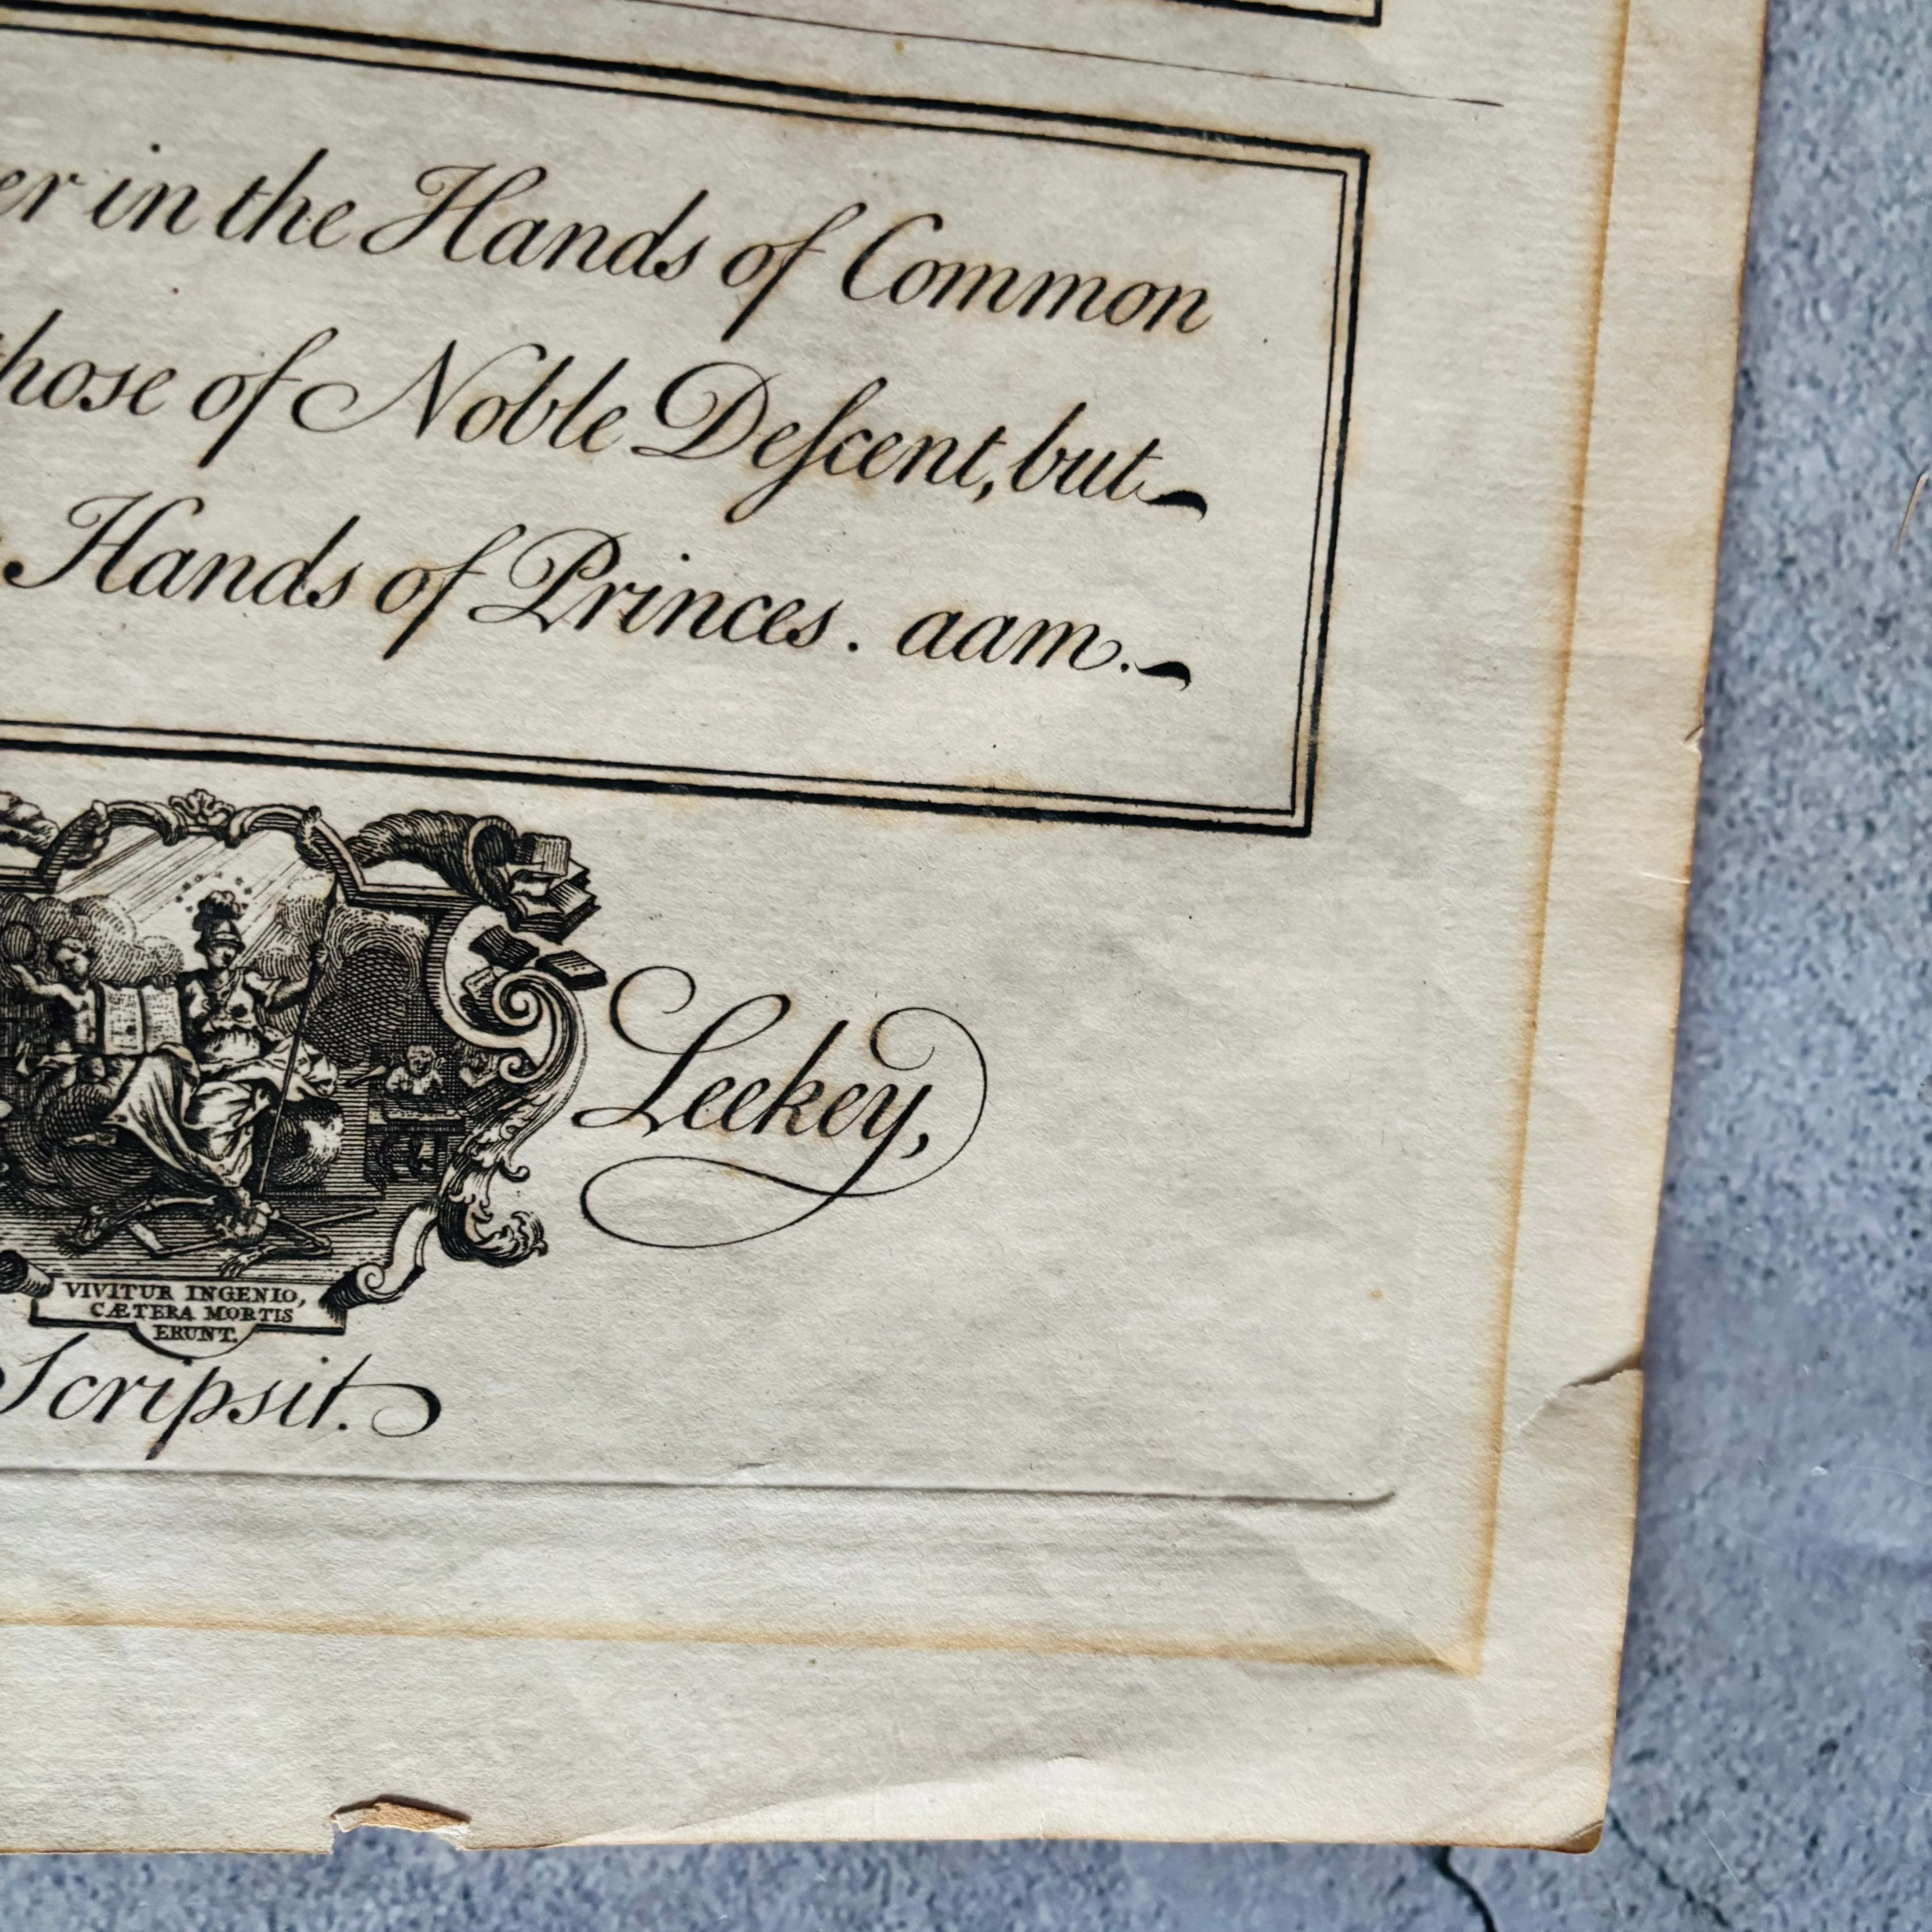 er in the Hands of Common
hose of Noble Deſcent, but
Hands of Princes. aam.
Leekey,
VIVITUR INGENIO,
CÆTERA MORTIS
ERUNT.
Scripsit.